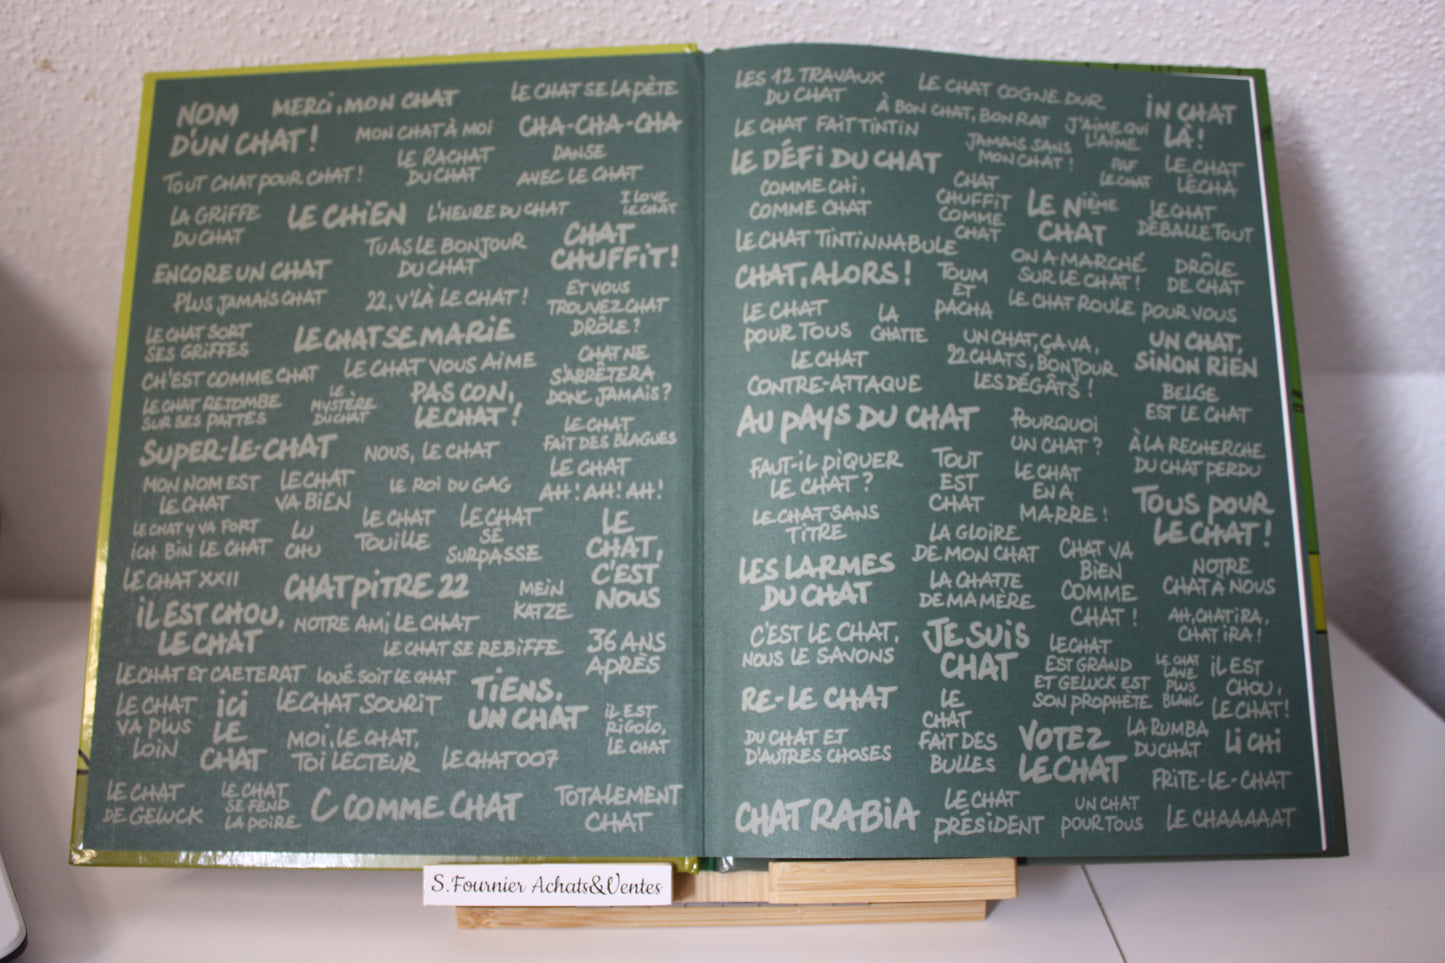 NOM
D'UN CHAT !
MERCI, MON CHAT
LE CHAT SE LA PÈTE
MON CHAT À MOI
CHA-CHA-CHA
TOUT CHAT POUR CHAT !
LE RACHAT
DU CHAT
DANSE
AVEC LE CHAT
LA GRIFFE
DU CHAT
LE CHIEN
L'HEURE DU CHAT
I LOVE
LE CHAT
TU AS LE BONJOUR
DU CHAT
CHAT
CHUFFIT !
ENCORE UN CHAT
PLUS JAMAIS CHAT
22, V'LÀ LE CHAT !
ET VOUS
TROUVEZ CHAT
DRÔLE ?
LE CHAT SORT
SES GRIFFES
LE CHAT SE MARIE
CH'EST COMME CHAT
LE CHAT VOUS AIME
CHAT NE
S'ARRÊTERA
DONC JAMAIS ?
LE CHAT RETOMBE
SUR SES PATTES
LE
MYSTÈRE
DU CHAT
PAS CON,
LE CHAT !
LE CHAT
FAIT DES BLAGUES
SUPER-LE-CHAT
NOUS, LE CHAT
MON NOM EST
LE CHAT
LE CHAT
VA BIEN
LE ROI DU GAG
LE CHAT
AH ! AH ! AH !
LE CHAT Y VA FORT
ICH BIN LE CHAT
LU
CHU
LE CHAT
TOUILLE
LE CHAT
SE
SURPASSE
LE
CHAT,
C'EST
NOUS
LE CHAT XXII
CHATPITRE 22
MEIN
KATZE
IL EST CHOU,
LE CHAT
NOTRE AMI LE CHAT
LE CHAT SE REBIFFE
36 ANS
APRÈS
LE CHAT ET CAETERAT
LOUÉ SOIT LE CHAT
LE CHAT
VA PLUS
LOIN
ICI
LE
CHAT
LE CHAT SOURIT
TIENS,
UN CHAT
IL EST
RIGOLO,
LE CHAT
MOI, LE CHAT,
TOI LECTEUR
LE CHAT 007
LE CHAT
DE GELUCK
LE CHAT
SE FEND
LA POIRE
C COMME CHAT
TOTALEMENT
CHAT
LES 12 TRAVAUX
DU CHAT
LE CHAT COGNE DUR
IN CHAT
LÀ !
À BON CHAT, BON RAT
LE CHAT FAIT TINTIN
J'AIME QUI
L'AIME
JAMAIS SANS
MON CHAT !
LE DÉFI DU CHAT
PAF
LE CHAT
LE CHAT
LÈCHA
COMME CHI,
COMME CHAT
CHAT
CHUFFIT
COMME
CHAT
LE NIÈME
CHAT
LE CHAT
DÉBALLE TOUT
LE CHAT TINTINNABULE
ON A MARCHÉ
SUR LE CHAT !
DRÔLE
DE CHAT
CHAT, ALORS !
TOUM
ET
PACHA
LE CHAT ROULE POUR VOUS
LE CHAT
POUR TOUS
LA
CHATTE
UN CHAT, ÇA VA,
22 CHATS, BONJOUR
LES DÉGÂTS !
UN CHAT,
SINON RIEN
LE CHAT
CONTRE-ATTAQUE
BELGE
EST LE CHAT
AU PAYS DU CHAT
POURQUOI
UN CHAT ?
À LA RECHERCHE
DU CHAT PERDU
FAUT-IL PIQUER
LE CHAT ?
TOUT
EST
CHAT
LE CHAT
EN A
MARRE !
TOUS POUR
LE CHAT !
LE CHAT SANS
TITRE
LA GLOIRE
DE MON CHAT
CHAT VA
BIEN
COMME
CHAT !
LES LARMES
DU CHAT
LA CHATTE
DE MA MÈRE
NOTRE
CHAT À NOUS
C'EST LE CHAT,
NOUS LE SAVONS
JE SUIS
CHAT
AH, CHAT IRA,
CHAT IRA !
LE CHAT
EST GRAND
ET GELUCK EST
SON PROPHÈTE
LE CHAT
LAVE
PLUS
BLANC
IL EST
CHOU,
LE CHAT !
RE-LE CHAT
LE
CHAT
FAIT DES
BULLES
DU CHAT ET
D'AUTRES CHOSES
VOTEZ
LE CHAT
LA RUMBA
DU CHAT
LI CHI
FRITE-LE-CHAT
CHATRABIA
LE CHAT
PRÉSIDENT
UN CHAT
POUR TOUS
LE CHAAAAAT
S.Fournier Achats&Ventes